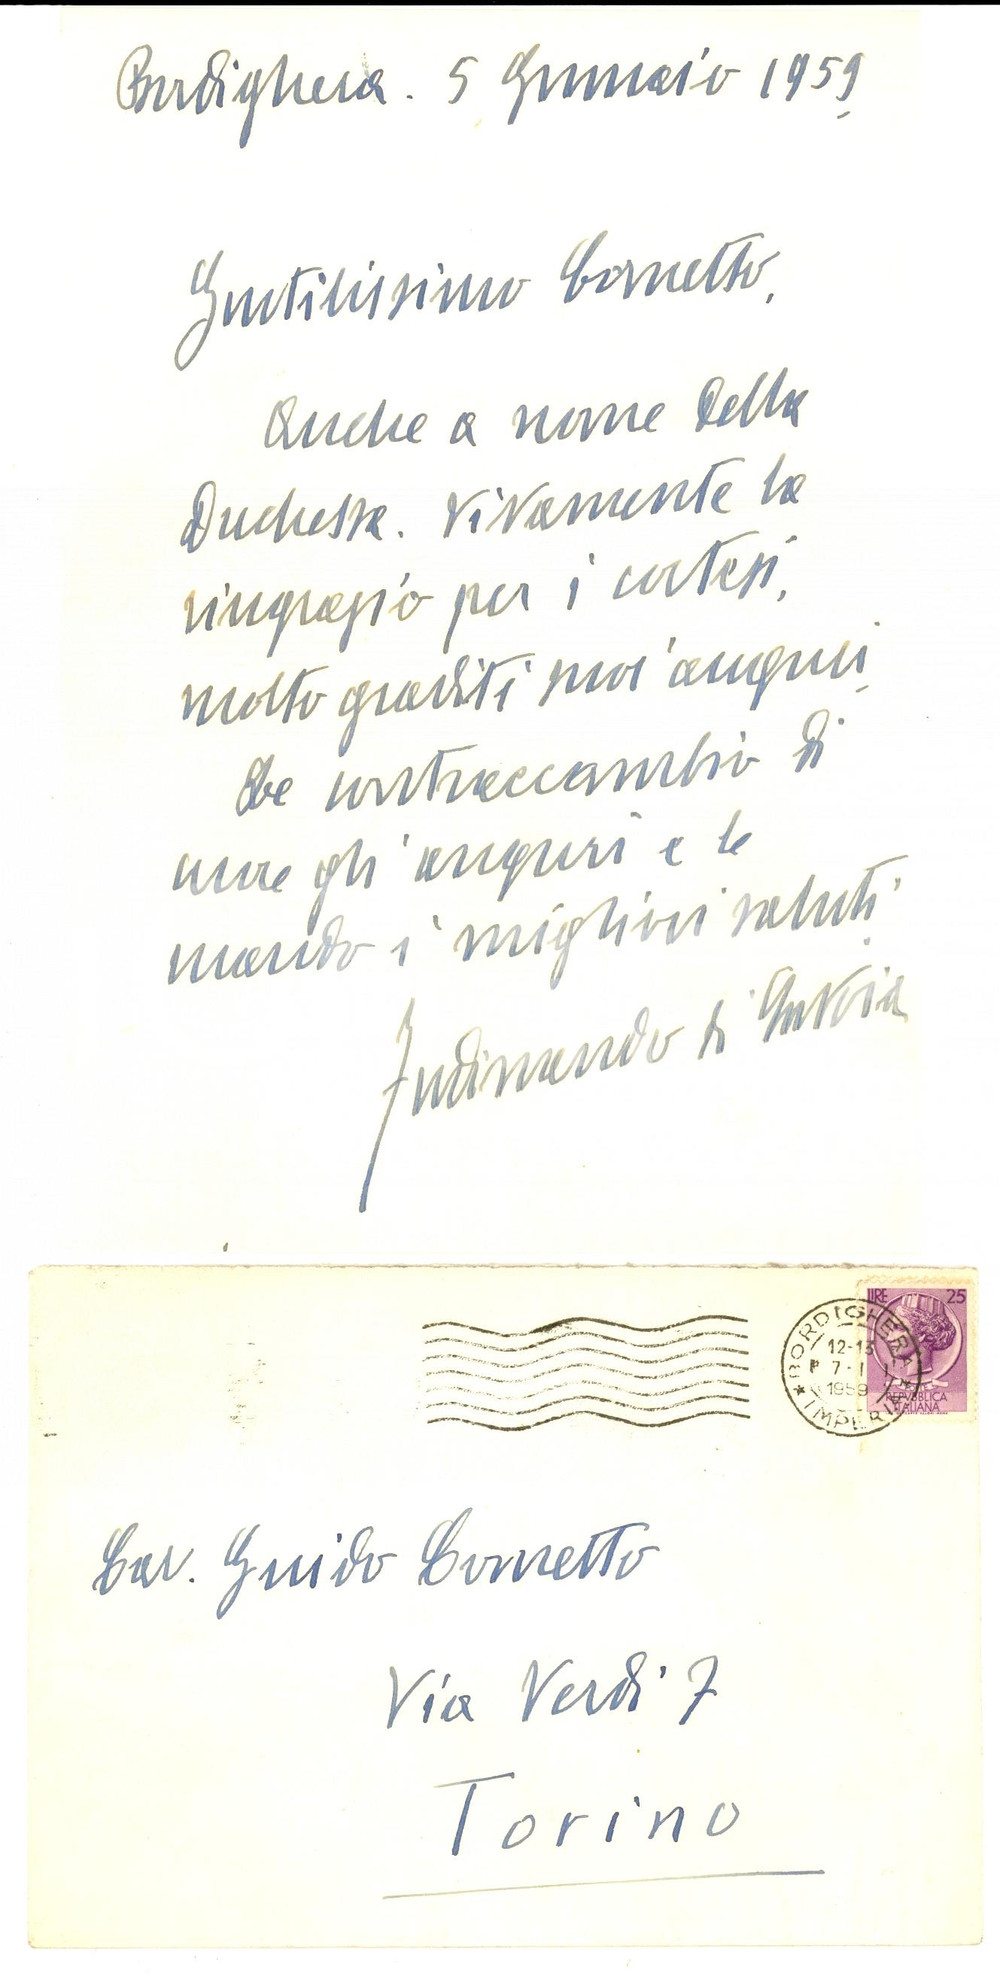 Bordighera. 5 Gennaio 1959
Gentilissimo Cornetto,
Anche a nome della
Duchessa. Vivamente la
ringrazio per i cortesi,
molto graditi suoi auguri.
Le contraccambio di
cuore gli auguri e le
mando i migliori saluti.
Ferdinando di Savoia
LIRE 25
REPVBBLICA
ITALIANA
BORDIGHERA
12-13
7-1
1959
IMPERIA
Cav. Guido Cornetto
Via Verdi 7
Torino